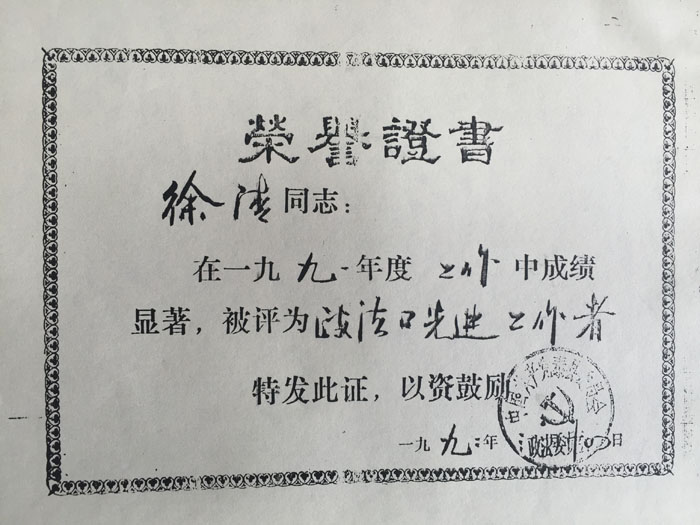 榮譽證書
徐清同志：
在一九九一年度工作中成绩
显著，被评为政法口先进工作者
特发此证，以资鼓励
一九九二年 日
政法委